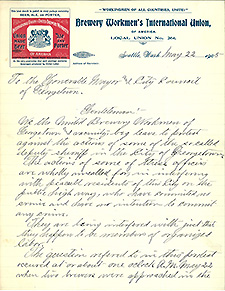 "WORKINGMEN OF ALL COUNTRIES, UNITE!"
Brewery Workmen's International Union,
OF AMERICA.
LOCAL UNION No.
Seattle, Wash May 22
To the Honorable Mayor & City Council
of Georgetown
Gentlemen:
We the United Brewery Workmen of
Georgetown & vicinity beg leave to protest
against the actions of some of the so called
deputy sheriffs in the City of Georgetown
The actions of some of these officers
are wholly uncalled for in interfering
with peaceful residents of this City on the
public highway who have committed no
and have no intention to commit
any crime.
They are being interfered with just that
they happen to be members of organized
Labor.
The question referred to in this protest
occured at about one o'clock A.M. May 22
when two brewers were approached in the